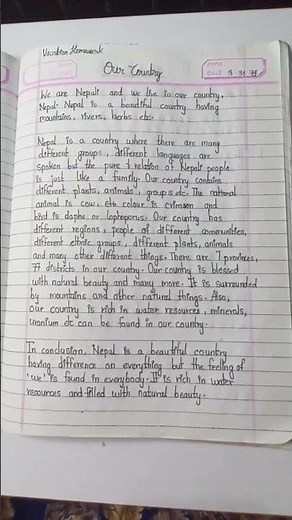 Vacation Homework
Our Country
We are Nepali and we live in our country,
Nepal. Nepal is a beautiful country having
mountains, rivers, herbs etc.
Nepal is a country where there are many
different groups, different languages are
spoken but the pure relation of Nepali people
is just like a family. Our country contains
different plants, animals, groups etc. The national
animal is cow, etc colour is crimson and
bird is daphe or lophoporus. Our country has
different regions, people of different communities,
different ethnic groups, different plants, animals
and many other different things. There are 7 provinces,
77 districts in our country. Our country is blessed
with natural beauty and many more. It is surrounded
by mountains and other natural things. Also,
our country is rich in water resources, minerals,
uranium etc can be found in our country.
In conclusion, Nepal is a beautiful country
having difference on everything but the feeling of
'we' is found in everybody. It is rich in water
resources and filled with natural beauty.